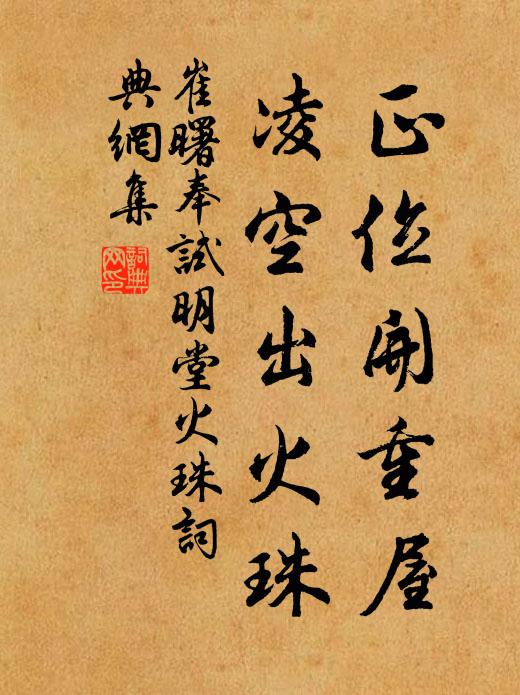 正位開重屋
凌空出火珠
崔曙奉試明堂火珠詞
典網集
詞典
网印